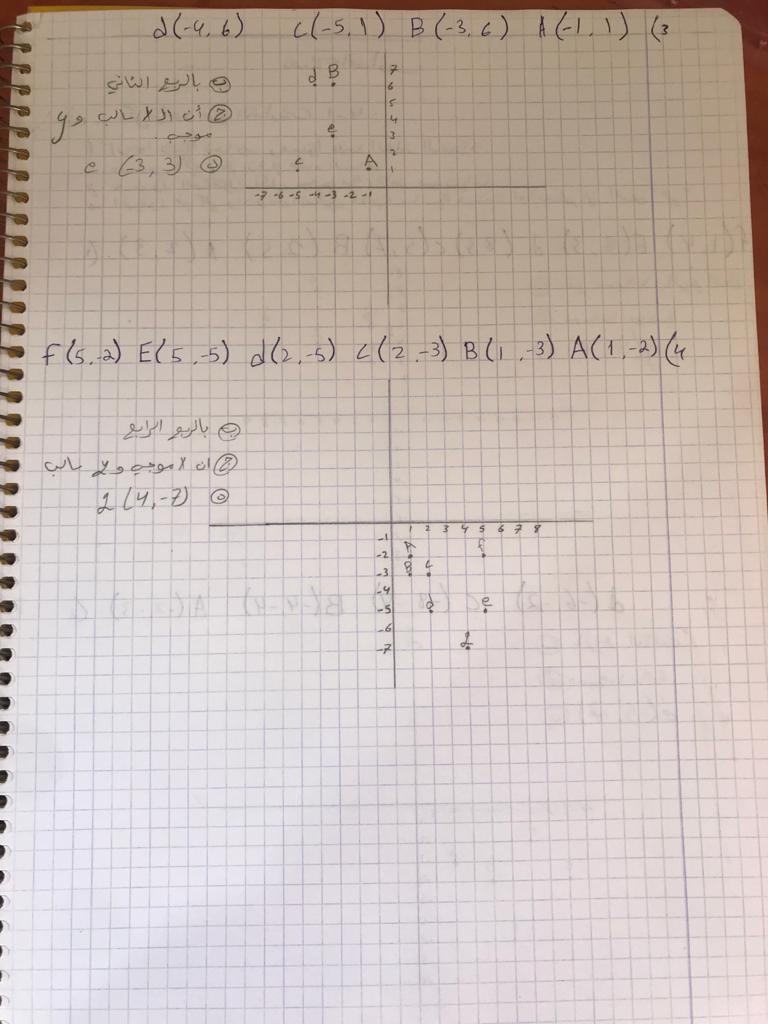 3) A(-1,1) B(-3,6) C(-5,1) d(-4,6)
ب) بالربع الثاني
ج) أن الـ x سالب و y
موجب
د) e (-3,3)
7
6
5
4
3
2
1
d B
e
c A
-7 -6 -5 -4 -3 -2 -1
4) A(1,-2) B(1,-3) C(2,-3) d(2,-5) E(5,-5) f(5,-2)
ب) بالربع الرابع
ج) ان x موجب و y سالب
1 2 3 4 5 6 7 8
-1
-2
-3
-4
-5
-6
-7
A f
B c
d e